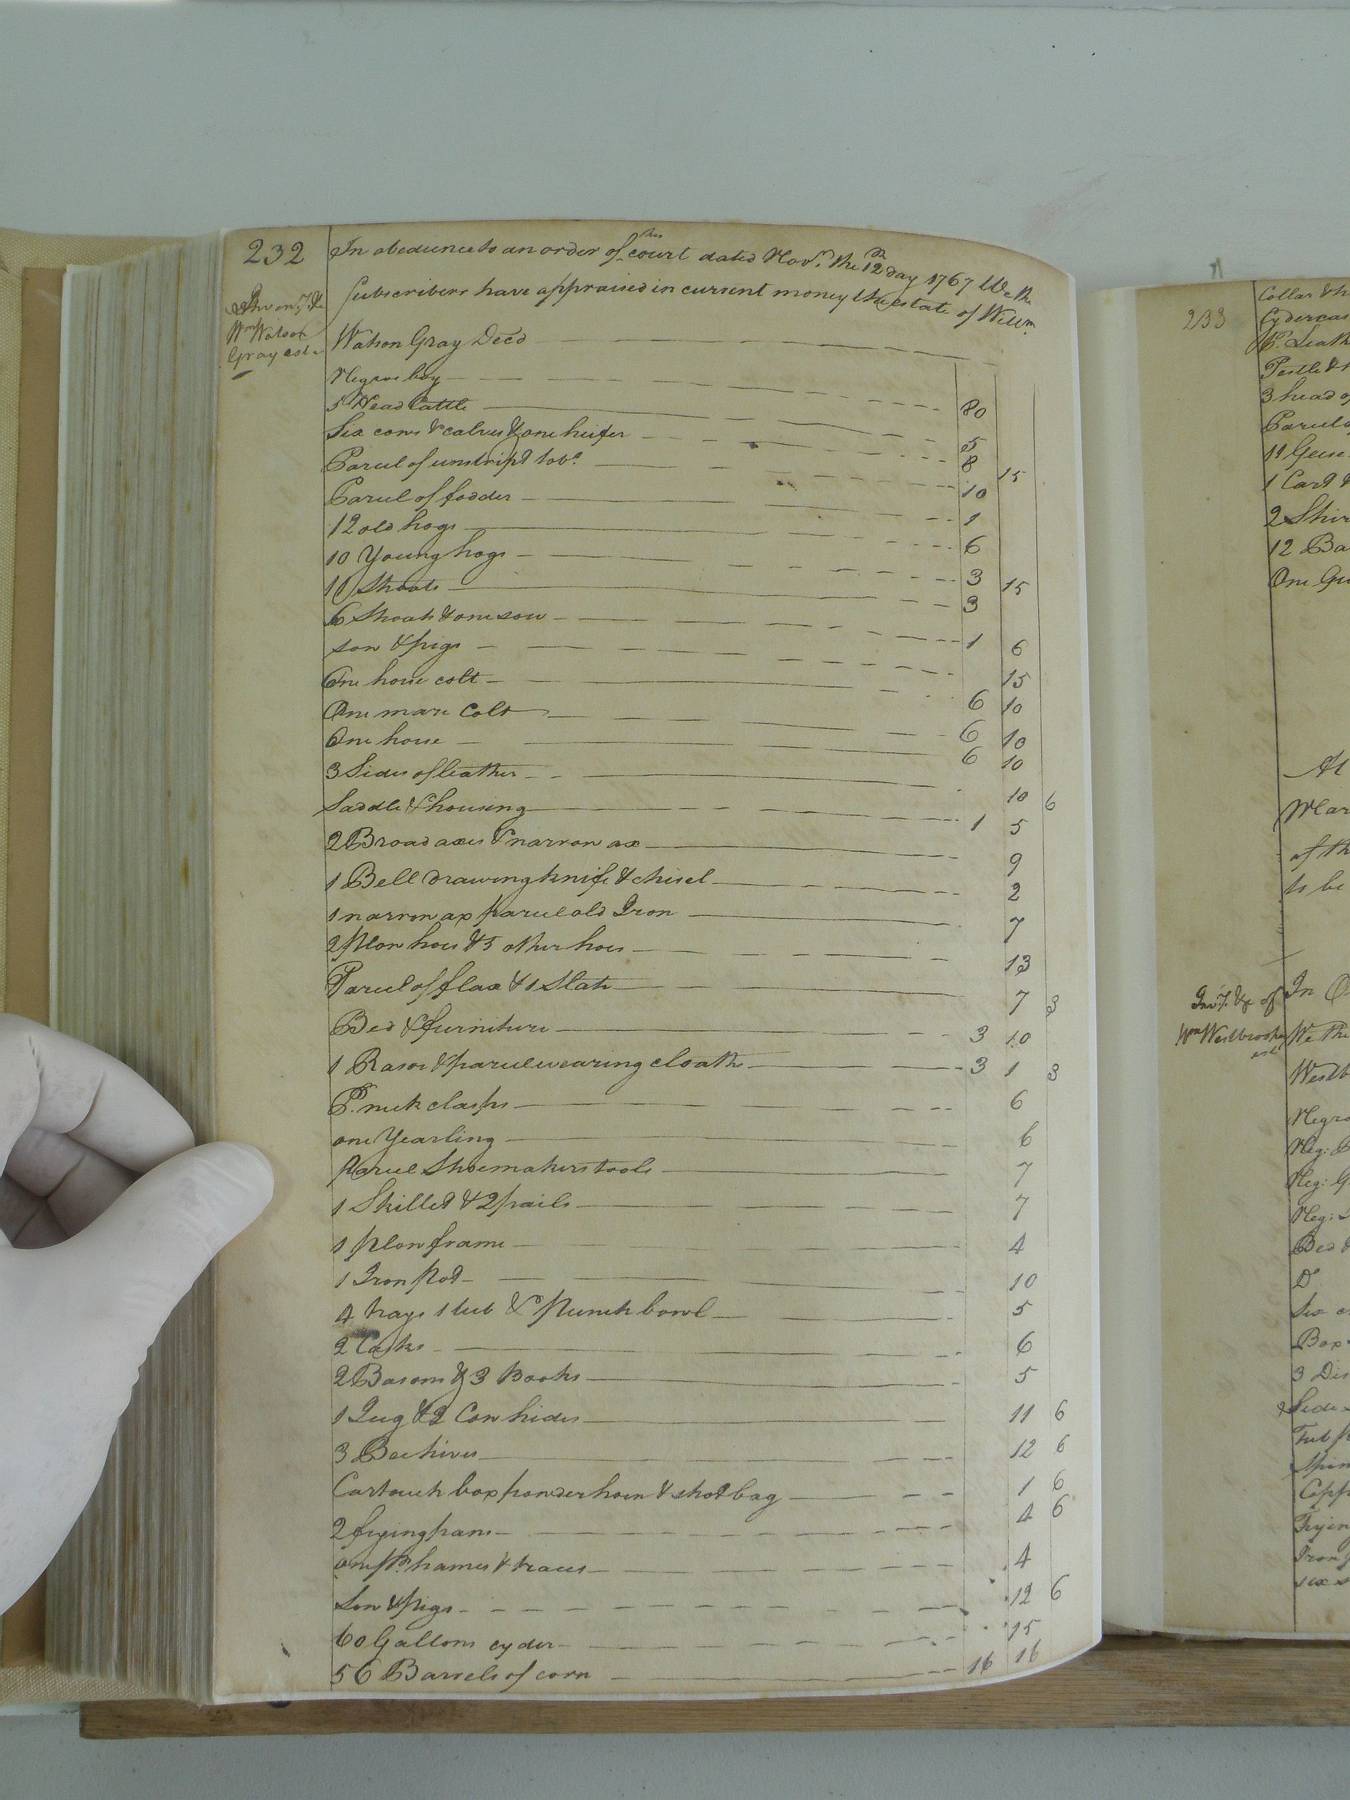 232
In obedience to an order of this court dated Novr. the 12th day 1767 We the
Subscribers have appraised in current money the estate of Willm.
Watson Gray Decd
Inventy. &c
Wm Watson
Gray est
Negroe boy 80
5 Head Cattle 5
Six cows & calves & one heifer 8 15
Parcel of unstript tobo. 10
Parcel of fodder 1
12 old hogs 6
10 Young hogs 3 15
11 Shoats 3
6 Shoats & one sow 1 6
sow & pigs 15
One horse colt 6 10
One mare Colt 6 10
One horse 6 10
3 Sides of leather 10 6
Saddle & housing 1 5
2 Broad axes & narrow ax 9
1 Bell drawing knife & chisel 2
1 narrow ax parcel old Iron 7
2 plow hoes & 5 other hoes 13
Parcel of flax & 1 Slate 7 3
Bed & furniture 3 10
1 Rasor & parcel wearing cloaths 3 1 3
P. neck clasps 6
one Yearling 6
parcel Shoemakers tools 7
1 Skillet & 2 pails 7
1 plow frame 4
1 Iron Pot 10
4 trays 1 tub & punch bowl 5
2 Casks 6
2 Basons & 3 Books 5
1 Jug & 2 Cow hides 11 6
3 Bee hives 12 6
Cartouch box powder horn & shot bag 1 6
2 frying pans 4 6
one pr. hames & traces 4
Sow & pigs 12 6
60 Gallons cyder 15
56 Barrels of corn 16 16
233
Collar & h
Cyder cas
P. Leath
Pestle &
3 head o
Parcel
11 Geese
1 Cart &
2 Shir
12 Ba
One Gu
At
Mar
of th
to be
Invy. &c of
Wm Westbrooks
est
In O
We the
Westb
Negro
Neg: B
Neg: G
Neg:
Bed &
Do
Six
Box
3 Dis
Side
Tub
Spin
Copp
Frying
Iron
six